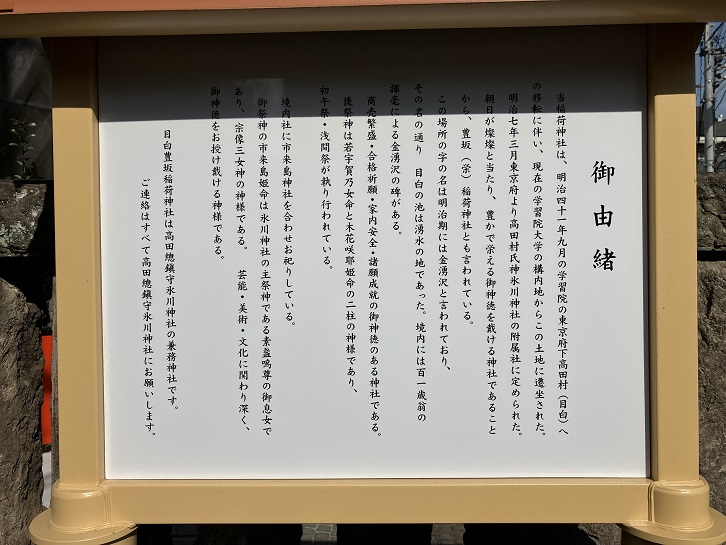 御由緒
当稲荷神社は、明治四十一年九月の学習院の東京府下高田村（目白）へ
の移転に伴い、現在の学習院大学の構内地からこの土地に遷坐された。
明治七年三月東京府より高田村氏神氷川神社の附属社に定められた。
朝日が燦燦と当たり、豊かで栄える御神徳を戴ける神社であること
から、豊坂（栄）稲荷神社とも言われている。
この場所の字の名は明治期には金湧沢と言われており、
その名の通り　目白の池は湧水の地であった。境内には百一歳翁の
揮毫による金湧沢の碑がある。
商売繁盛・合格祈願・家内安全・諸願成就の御神徳のある神社である。
後祭神は若宇賀乃女命と木花咲耶姫命の二柱の神様であり、
初午祭・浅間祭が執り行われている。
境内社に市来島神社を合わせお祀りしている。
御祭神の市来島姫命は氷川神社の主祭神である素盞嗚尊の御息女で
あり、宗像三女神の神様である。　芸能・美術・文化に関わり深く、
御神徳をお授け戴ける神様である。
目白豊坂稲荷神社は高田總鎮守氷川神社の兼務神社です。
ご連絡はすべて高田總鎮守氷川神社にお願いします。